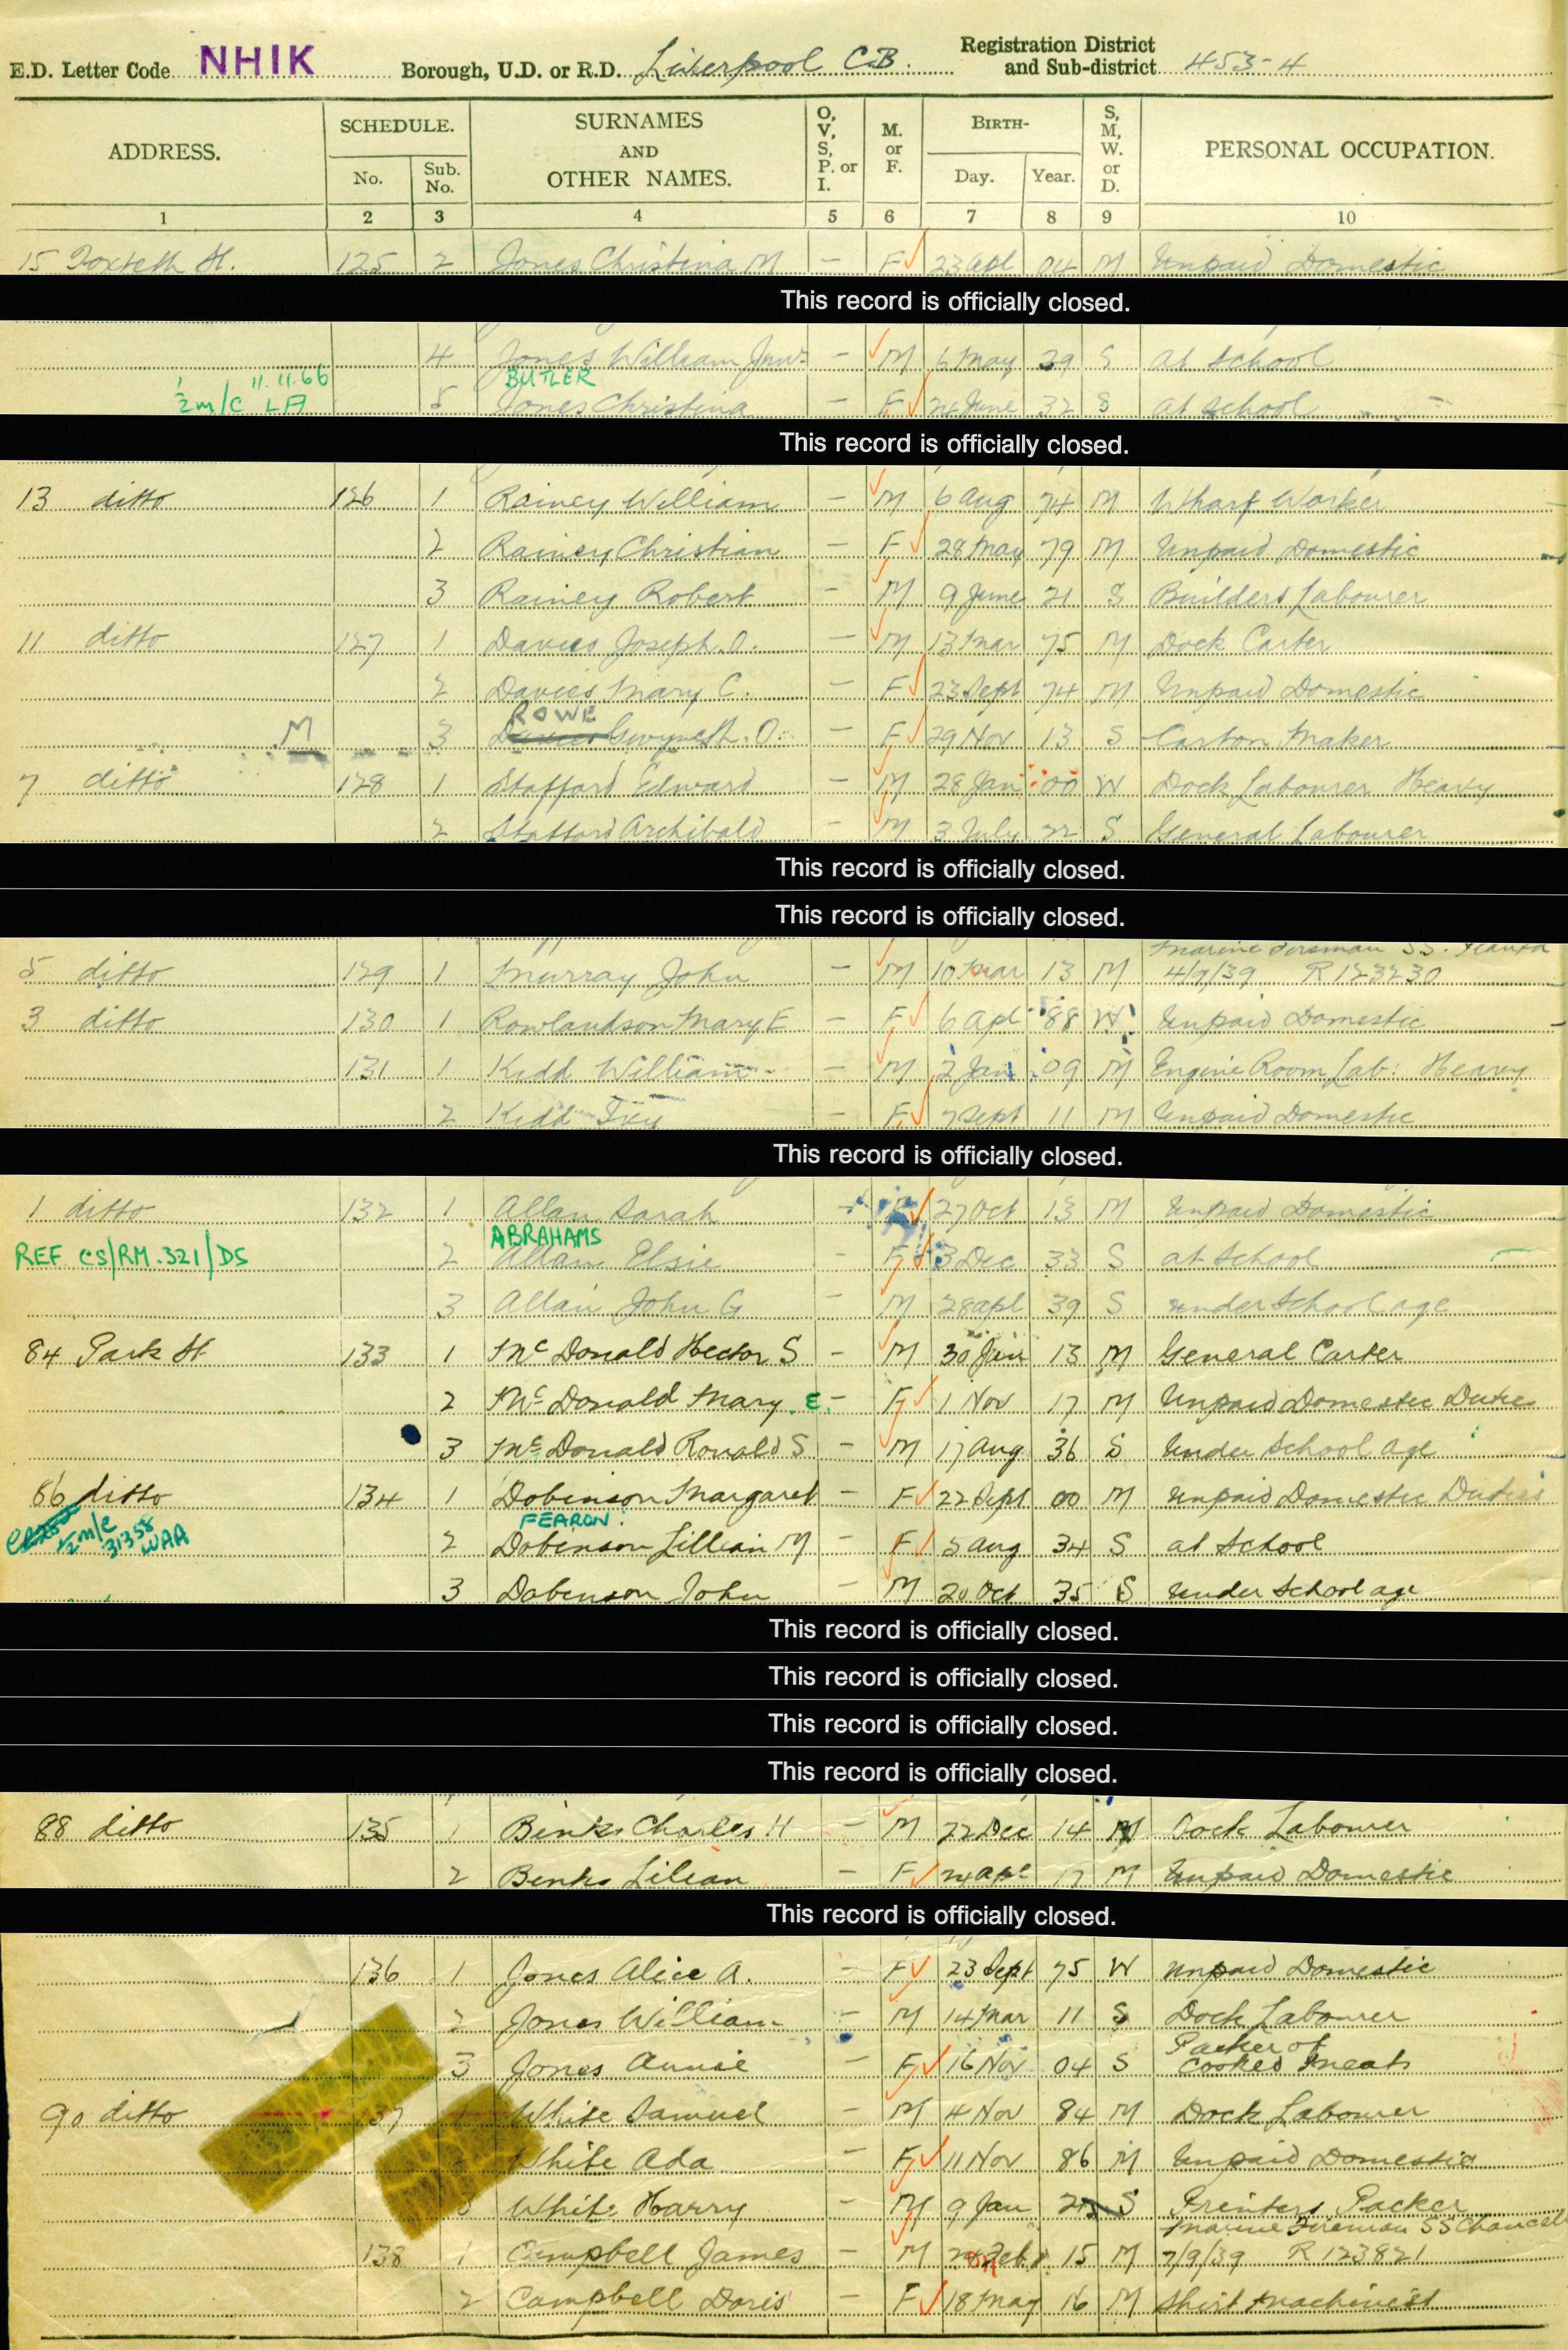 E.D. Letter Code NHIK Borough, U.D. or R.D. Liverpool C.B. Registration District and Sub-district 453-4
ADDRESS. SCHEDULE. No. Sub. No. SURNAMES AND OTHER NAMES. O, V, S, P. or I. M. or F. BIRTH- Day. Year. S, M, W. or D. PERSONAL OCCUPATION.
1 2 3 4 5 6 7 8 9 10
15 Toxteth St. 125 2 Jones Christina M — F 23 Apl 04 M Unpaid Domestic
This record is officially closed.
4 Jones William — M 6 May 29 S at School
1/2 m/c 11.11.66 LA BUTLER
5 Jones Christina — F 24 June 32 S at School
This record is officially closed.
13 ditto 126 1 Rainey William — M 6 Aug 74 M Wharf Worker
2 Rainey Christian — F 28 May 79 M Unpaid Domestic
3 Rainey Robert — M 9 June 21 S Builders Labourer
11 ditto 127 1 Davies Joseph. O. — M 13 Mar 75 M Dock Carter
2 Davies Mary C. — F 23 Sept 74 M Unpaid Domestic
ROWE
M 3 Davies Gwyneth. O. — F 29 Nov 13 S Carton Maker
7 ditto 128 1 Stafford Edward — M 28 Jan 00 W Dock Labourer Heavy
2 Stafford Archibald — M 3 July 22 S General Labourer
This record is officially closed.
This record is officially closed.
Marine Fireman SS.
5 ditto 129 1 Murray John — M 10 Mar 13 M 4/9/39 R 123230
3 ditto 130 1 Rowlandson Mary E — F 6 Apl 88 W Unpaid Domestic
131 1 Kidd William — M 2 Jan 09 M Engine Room Lab: Heavy
2 Kidd Ivy — F 7 Sept 11 M Unpaid Domestic
This record is officially closed.
1 ditto 132 1 Allan Sarah F 27 Oct 13 M Unpaid Domestic
ABRAHAMS
REF CS/RM.321/DS 2 Allan Elsie — F 3 Dec 33 S at School
3 Allan John G — M 28 Apl 39 S under School age
84 Park St 133 1 McDonald Hector S — M 30 Jan 13 M General Carter
2 McDonald Mary. E. — F 1 Nov 17 M Unpaid Domestic Duties
3 McDonald Ronald S — M 17 Aug 36 S Under School age
86 ditto 134 1 Dobinson Margaret — F 22 Sept 00 M Unpaid Domestic Duties
1/2 m/c 31358 WAA FEARON
2 Dobinson Lillian M — F 5 Aug 34 S at School
3 Dobinson John — M 20 Oct 35 S Under School age
This record is officially closed.
This record is officially closed.
This record is officially closed.
This record is officially closed.
88 ditto 135 1 Binks Charles H — M 22 Dec 14 M Dock Labourer
2 Binks Lilian — F 24 Apl 17 M Unpaid Domestic
This record is officially closed.
136 1 Jones Alice A. — F 23 Sept 75 W Unpaid Domestic
2 Jones William — M 14 Mar 11 S Dock Labourer
3 Jones Annie — F 16 Nov 04 S Packer of Cooked Meats
90 ditto 137 1 White Samuel — M 4 Nov 84 M Dock Labourer
White Ada — F 11 Nov 86 M Unpaid Domestic
3 White Harry — M 9 Jan S Printers Packer
Marine Fireman SS
138 1 Campbell James — M Feb 15 M 7/9/39 R 123821
2 Campbell Doris — F 18 May 16 M Shirt Machinist